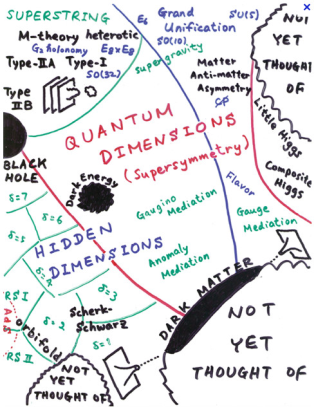 SUPERSTRING
M-theory heterotic
G₂ holonomy E₈×E₈
Type-IIA Type-I
SO(32)
Type
IIB
E₆ Grand
Unification
SU(5)
SO(10)
supergravity
Matter
Anti-matter
Asymmetry
CP
NOT
YET
THOUGHT
OF
Little Higgs
Composite
Higgs
QUANTUM
DIMENSIONS
(Supersymmetry)
BLACK
HOLE
Dark Energy
Flavor
Gaugino
Mediation
Gauge
Mediation
Anomaly
Mediation
HIDDEN
DIMENSIONS
δ=7
δ=6
δ=5
δ=4
δ=3
δ=2
δ=1
RS I
AdS
RS II
orbifold
Scherk-
Schwarz
DARK MATTER
NOT
YET
THOUGHT OF
NOT
YET
THOUGHT OF